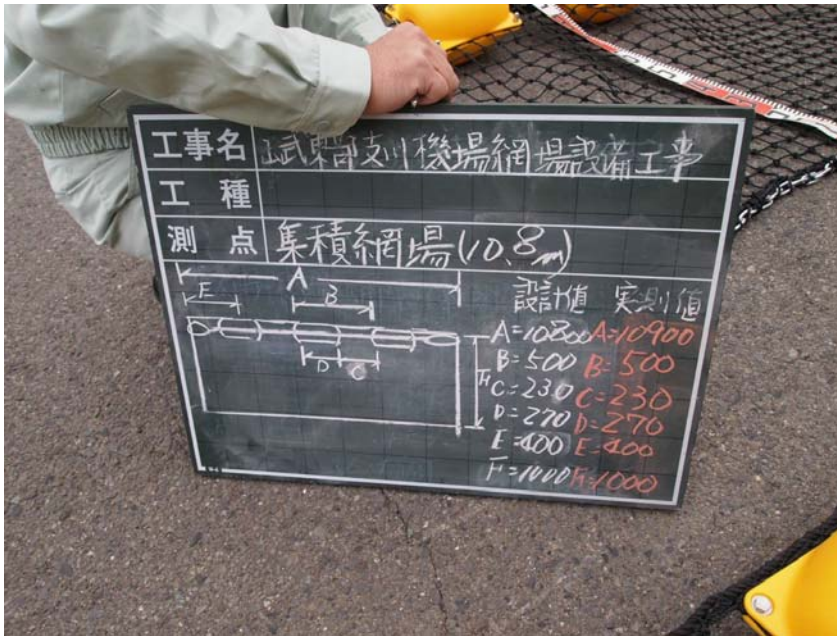 工事名 武東部支川機場網場設備工事
工種
測点 集積網場(10.8m)
A
E B
D C
F
設計値 実測値
A=10800 A=10900
B=500 B=500
C=230 C=230
D=270 D=270
E=400 E=400
F=1000 F=1000